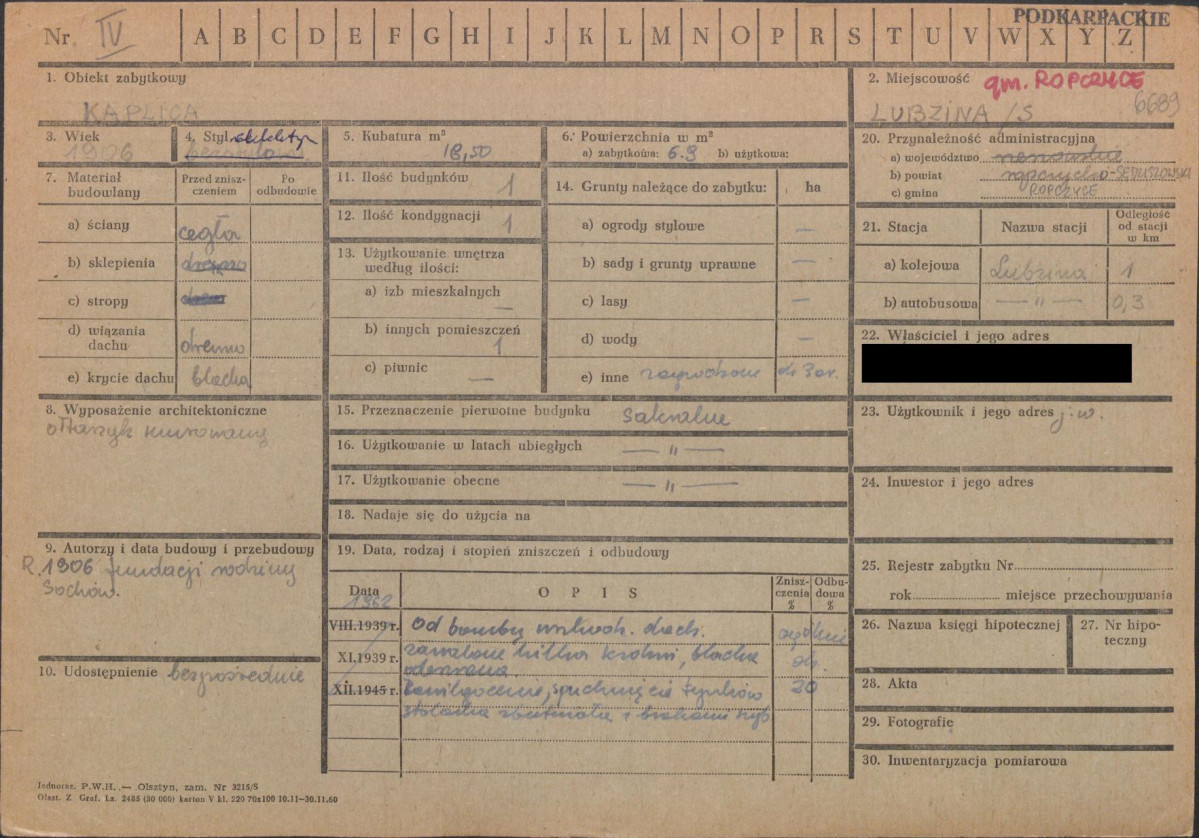 PODKARPACKIE
Nr. IV A B C D E F G H I J K L M N O P R S T U V W X Y Z
1. Obiekt zabytkowy
KAPLICA
2. Miejscowość gm. ROPCZYCE
LUBZINA /S 6689
3. Wiek
1906
4. Styl eklektyr
5. Kubatura m³
18,50
6. Powierzchnia w m²
a) zabytkowa: 6.9 b) użytkowa:
7. Materiał budowlany
Przed zniszczeniem
Po odbudowie
a) ściany cegła
b) sklepienia drewno
c) stropy
d) wiązania dachu drewno
e) krycie dachu blacha
8. Wyposażenie architektoniczne
ołtarzyk murowany
9. Autorzy i data budowy i przebudowy
R. 1906 fundacji rodziny
Sochów.
10. Udostępnienie bezpośrednie
11. Ilość budynków 1
12. Ilość kondygnacji 1
13. Użytkowanie wnętrza
według ilości:
a) izb mieszkalnych —
b) innych pomieszczeń 1
c) piwnic —
14. Grunty należące do zabytku: ha
a) ogrody stylowe —
b) sady i grunty uprawne —
c) lasy —
d) wody —
e) inne
15. Przeznaczenie pierwotne budynku sakralne
16. Użytkowanie w latach ubiegłych — " —
17. Użytkowanie obecne — " —
18. Nadaje się do użycia na
19. Data, rodzaj i stopień zniszczeń i odbudowy
Data
OPIS
Zniszczenia %
Odbudowa %
1962
VIII.1939 r. Od bomby dach.
XI.1939 r. zawalone kilka krokwi, blacha
oderwana
XII.1945 r. Zawilgocenie, tynków 20
stolarka zbutwiała i brakami szyb
20. Przynależność administracyjna
a) województwo rzeszowskie
b) powiat ropczycko-SĘDZISZOWSKI
c) gmina ROPCZYCE
21. Stacja
Nazwa stacji
Odległość
od stacji
w km
a) kolejowa Lubzina 1
b) autobusowa — " — 0,3
22. Właściciel i jego adres
23. Użytkownik i jego adres j.w.
24. Inwestor i jego adres
25. Rejestr zabytku Nr
rok miejsce przechowywania
26. Nazwa księgi hipotecznej
27. Nr hipoteczny
28. Akta
29. Fotografie
30. Inwentaryzacja pomiarowa
Jednoraz. P.W.H. — Olsztyn, zam. Nr 3215/S
Olszt. Z. Graf. Lz. 2485 (30 000) karton V kl. 220 70x100 10.11—30.11.60